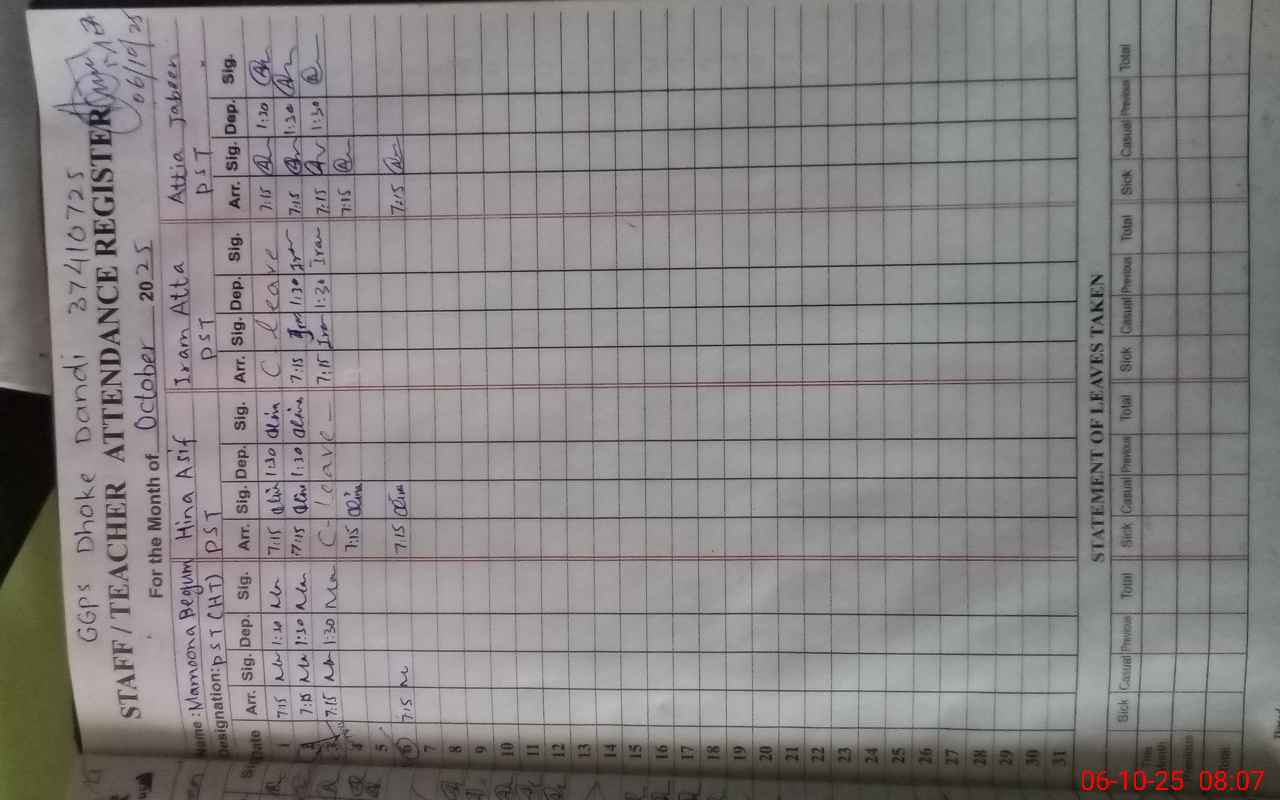 GGPS Dhoke Dandi 37410725
STAFF / TEACHER ATTENDANCE REGISTER
06/10/25
For the Month of October 2025
Name : Mamoona Begum Hina Asif Iram Atta Attia Jabeen
Designation: PST (HT) PST PST PST
Date Arr. Sig. Dep. Sig. Arr. Sig. Dep. Sig. Arr. Sig. Dep. Sig. Arr. Sig. Dep. Sig.
1 7:15 1:30 7:15 1:30 C leave 7:15 1:30
2 7:15 1:30 7:15 1:30 7:15 1:30 7:15 1:30
3 7:15 1:30 C- leave - 7:15 Iram 1:30 Iram 7:15 1:30
4 7:15 7:15
5
6 7:15 7:15 7:15
7
8
9
10
11
12
13
14
15
16
17
18
19
20
21
22
23
24
25
26
27
28
29
30
31
STATEMENT OF LEAVES TAKEN
Sick Casual Previous Total Sick Casual Previous Total Sick Casual Previous Total Sick Casual Previous Total
This Month
Previous
Total
06-10-25 08:07